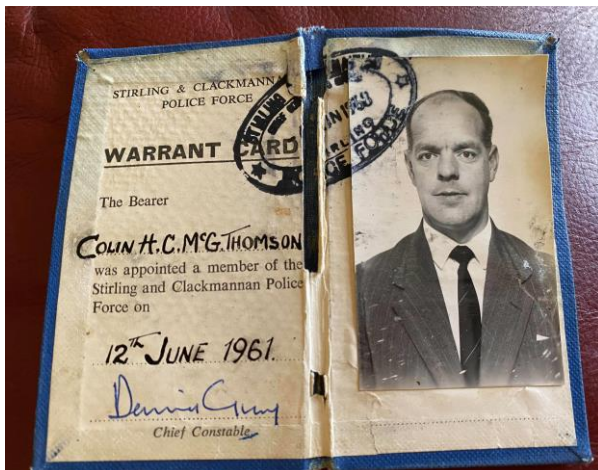 STIRLING & CLACKMANNAN
POLICE FORCE
WARRANT CARD
The Bearer
COLIN H.C. McG. THOMSON
was appointed a member of the
Stirling and Clackmannan Police
Force on
12TH JUNE 1961.
Chief Constable
STIRLING
FORCE